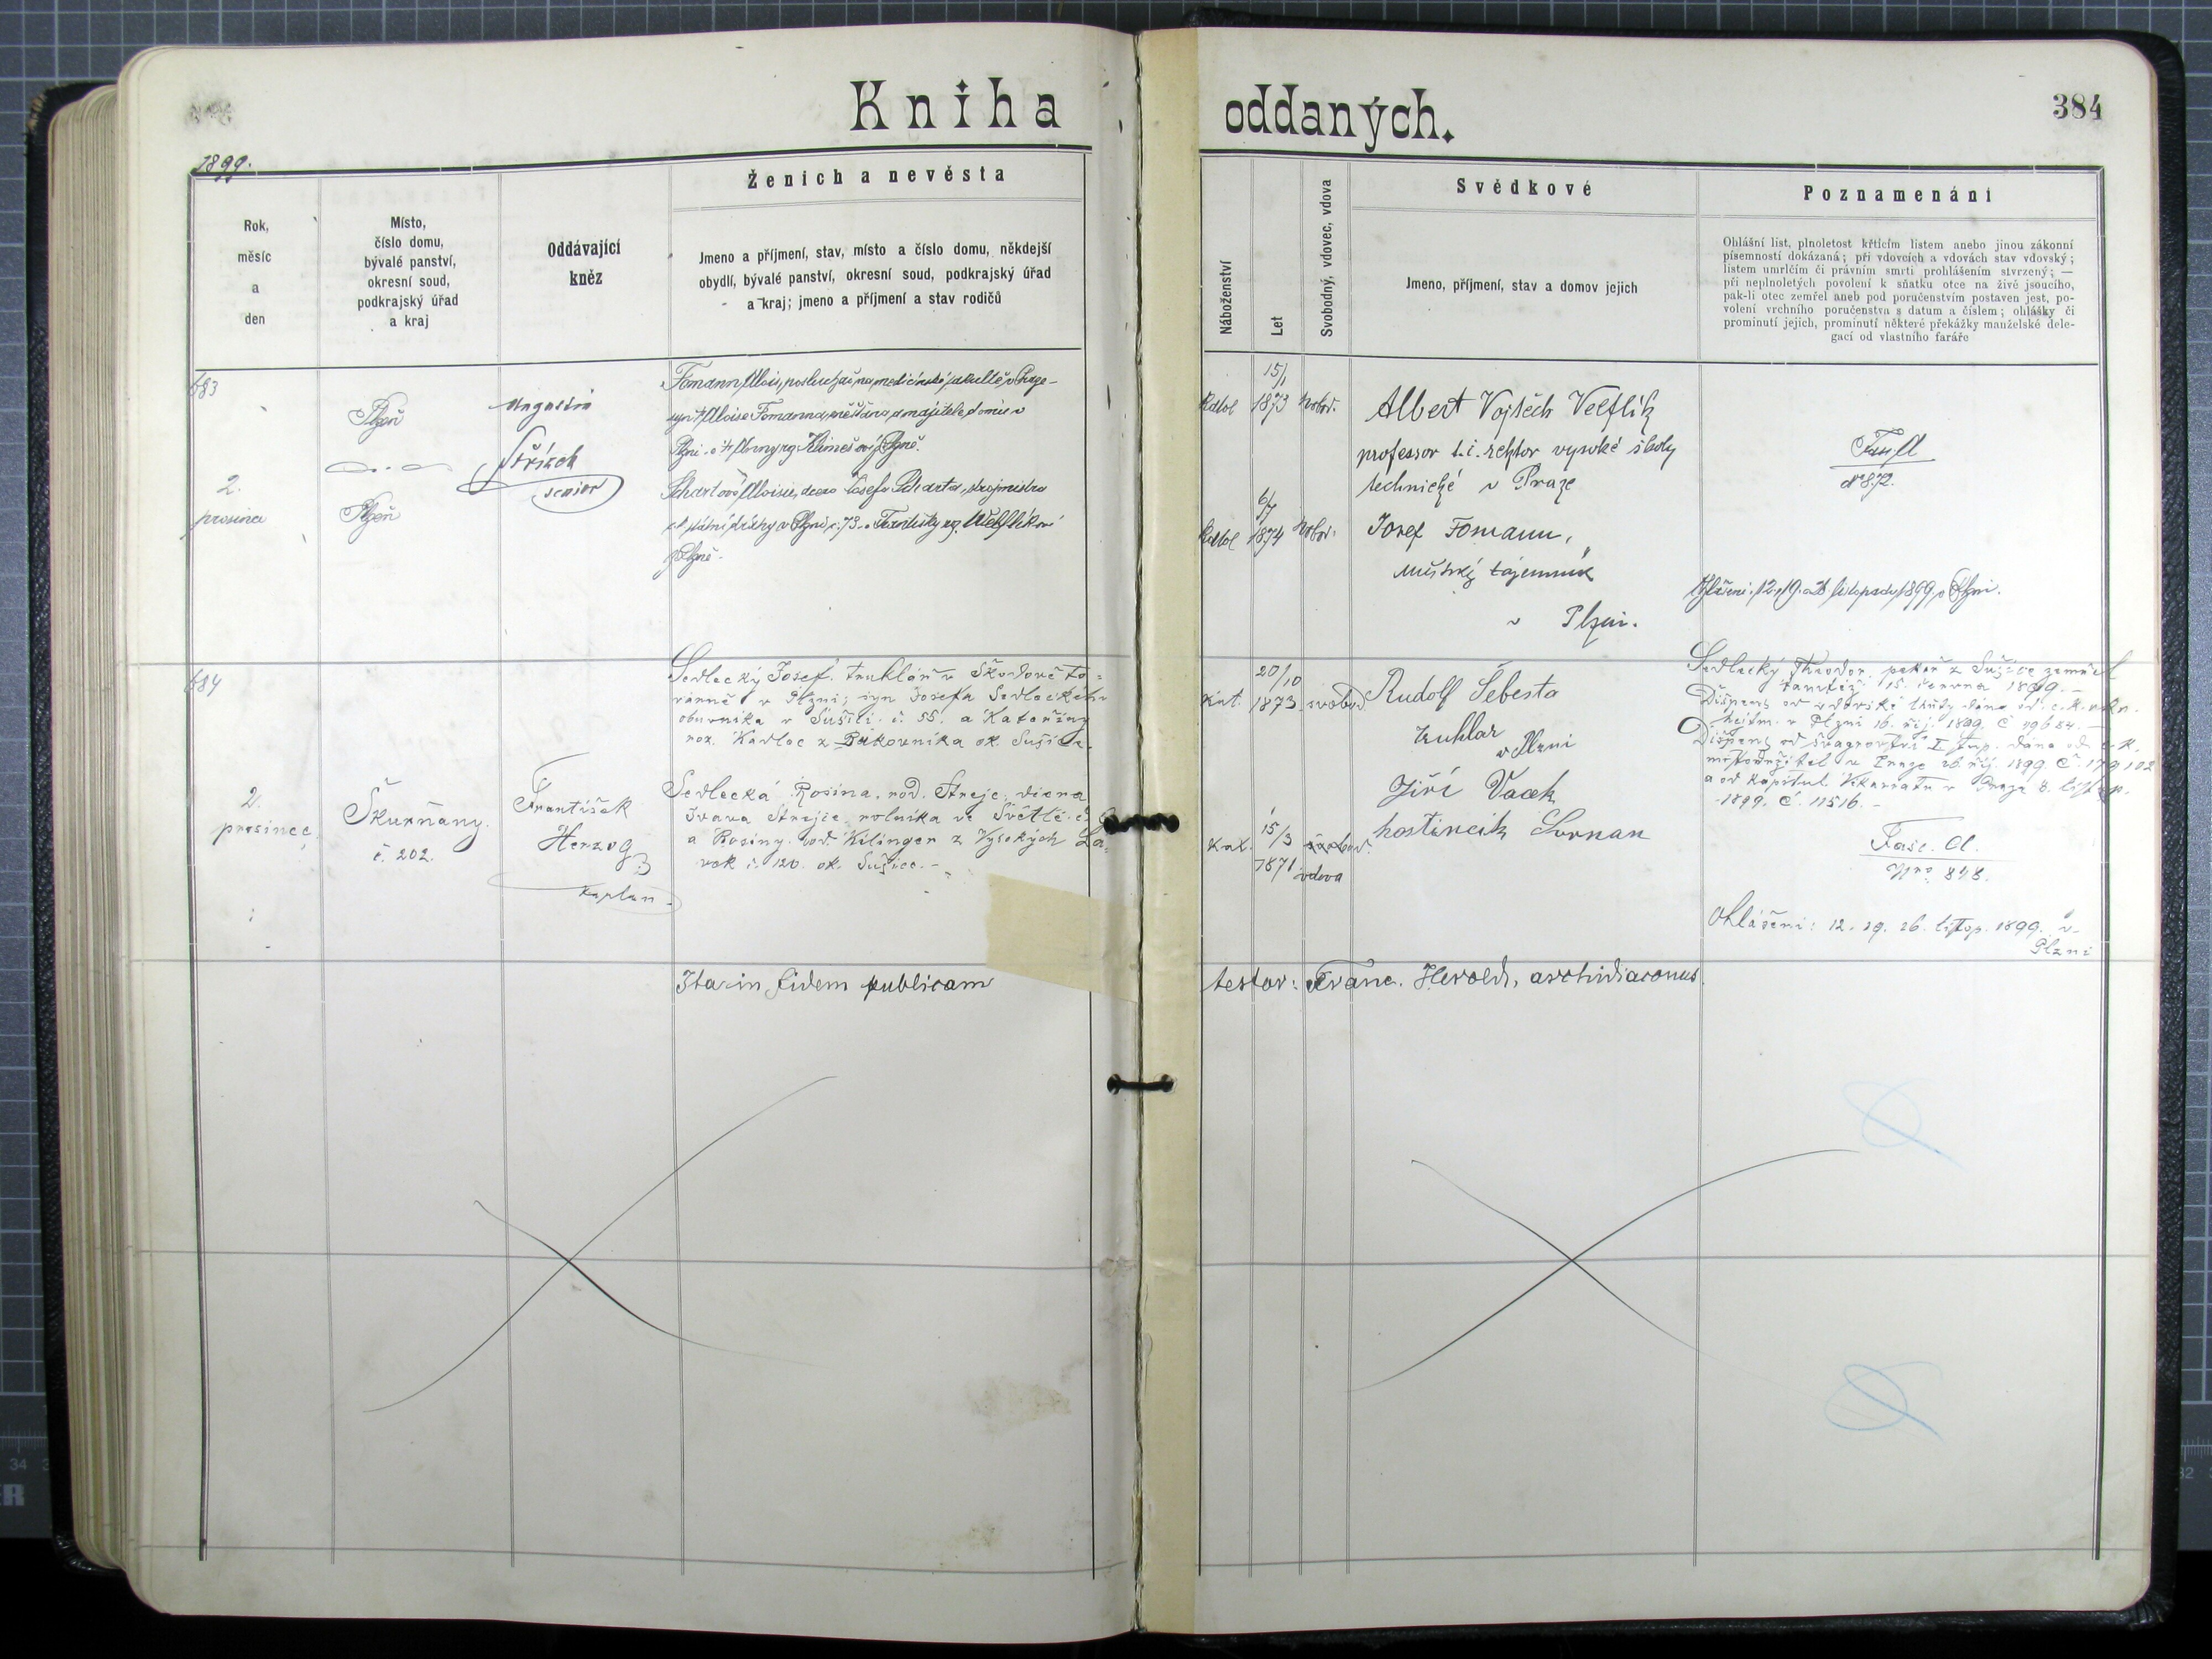 Kniha oddaných.
384
1899.
Rok,
měsíc
a
den
Místo,
číslo domu,
bývalé panství,
okresní soud,
podkrajský úřad
a kraj
Oddávající
kněz
Ženich a nevěsta
Jmeno a příjmení, stav, místo a číslo domu, někdejší
obydlí, bývalé panství, okresní soud, podkrajský úřad
a kraj; jmeno a příjmení a stav rodičů
Náboženství
Let
Svobodný, vdovec, vdova
Svědkové
Jmeno, příjmení, stav a domov jejich
Poznamenání
Ohlášní list, plnoletost křticím listem anebo jinou zákonní
písemností dokázaná; při vdovcích a vdovách stav vdovský;
listem umrlčím či právním smrti prohlášením stvrzený; —
při neplnoletých povolení k sňatku otce na živě jsoucího,
pak-li otec zemřel aneb pod poručenstvím postaven jest, po-
volení vrchního poručenstva s datum a číslem; ohlášky či
prominutí jejich, prominutí některé překážky manželské dele-
gací od vlastního faráře
683
2.
prosince
Plzeň
Plzeň
Augustin
Střízek
senior
Fomann Alois, posluchač na medicínské fakultě v Praze -
syn Aloise Fomanna, měšťana a majitele domu v
Plzni a Anny roz. Klimešovy z Plzně.
Aloisie, dcera Josefa
c.k. státní dráhy v Plzni č. 73. a Františky roz. Velflíkové
z Plzně.
15/1
Kathol 1873 svobod.
6/7
Kathol 1874 svobod.
Albert Vojtěch Velflík
professor t.č. rektor vysoké školy
technické v Praze
Josef Fomann,
městský tajemník
v Plzni.
N 872.
Ohlášení: 12. 19. a 26 listopadu 1899 v Plzni.
684
2.
prosince
Škurňany.
č. 202.
František
Herzog
kaplan.
Sedlecký Josef, truhlář v Škodově to-
várně v Plzni; syn Josefa Sedleckého
obuvníka v Sušici č. 55. a Kateřiny
roz. Kadlec z ok. Sušice.
Sedlecká Rosina, rod. Strejc, dcera
Strejce rolníka ve Světlé č.
a Rosiny rod. Kilinger z Vysokých La-
vek č. 120. ok. Sušice. -
20/10
Kat. 1873 svobod.
15/3
Kat. 1871 svobod.
vdova
Rudolf Šebesta
truhlar
v Plzni
Jiří Vacek
hostincik
Sedlecký Theodor, pekař z Sušice zemřel
tamtéž 15. června 1899. -
hejtm. v Plzni 16. říj. 1899. č 49684. -
Dispens od švagrovství I. stup. dána od c. k.
místodržitel v Praze 26. říj. 1899. č. 179102
a od kapitul. Vikariatu v Praze 8. listop.
1899. č. 11516. -
Fasc. A.
Nro 878.
Ohlášení: 12. 19. 26. listop. 1899. v
Plzni
Ita in fidem publicam testor: Franc. Herold, archidiaconus.